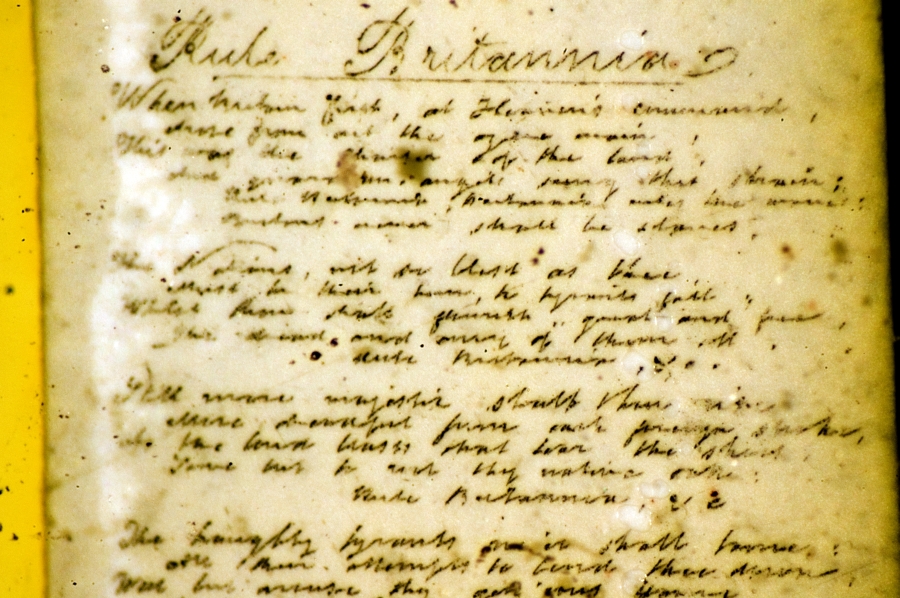 Rule Britannia
When Britain first, at Heaven's command,
Arose from out the azure main;
This was the charter of the land,
And guardian angels sung that strain;
Rule Britannia, Britannia rules the waves;
Britons never shall be slaves.
The Nations, not so blest as thee
Must in their turn, to tyrants fall,
Whilst thou shalt flourish great and free,
The dread and envy of them all.
Rule Britannia, &c.
Still more majestic shalt thou rise
More dreadful from each foreign stroke,
As the loud blasts that tear the skies
Serve but to root thy native oak.
Rule Britannia, & c
The haughty tyrants ne'er shall tame;
All their attempts to bend thee down
Will but arouse thy